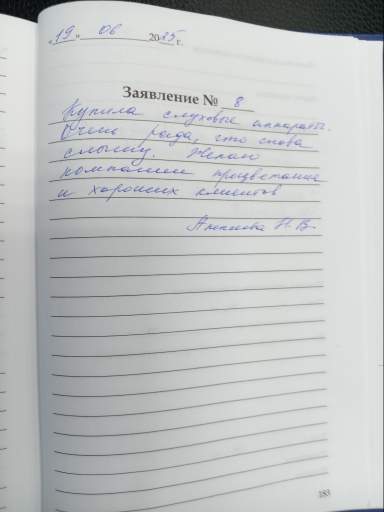 «19» 06 2025 г.
Заявление № 8
Купила слуховые аппараты.
Очень рада, что снова
слышу. Желаю
компании процветание
и хороших клиентов
Н. В.
183